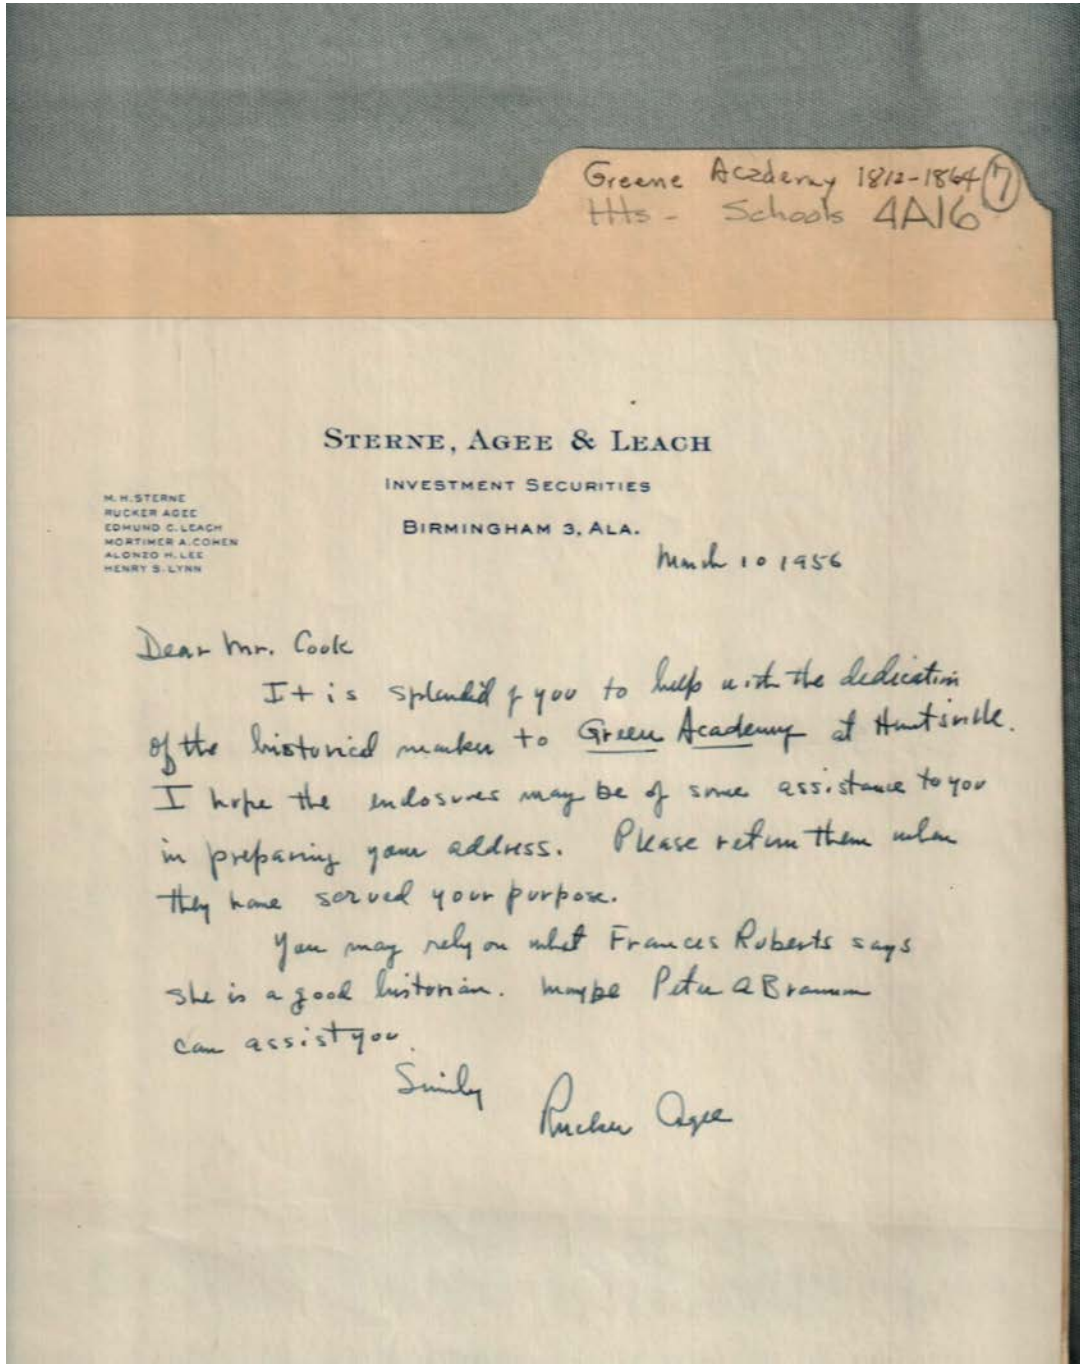 Greene Academy 1812-1864 7
Hts - Schools 4A16
STERNE, AGEE & LEACH
INVESTMENT SECURITIES
BIRMINGHAM 3, ALA.
M. H. STERNE
RUCKER AGEE
EDMUND C. LEACH
MORTIMER A. COHEN
ALONZO H. LEE
HENRY S. LYNN
March 10 1956
Dear Mr. Cook
It is splendid of you to help with the dedication
of the historical marker to Green Academy at Huntsville.
I hope the enclosures may be of some assistance to you
in preparing your address. Please return them when
they have served your purpose.
You may rely on what Frances Roberts says
she is a good historian. Maybe Peter A Brannon
can assist you.
Rucker Agee